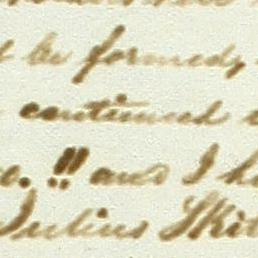 be formed,
continued
!! and I h
Julius Skit